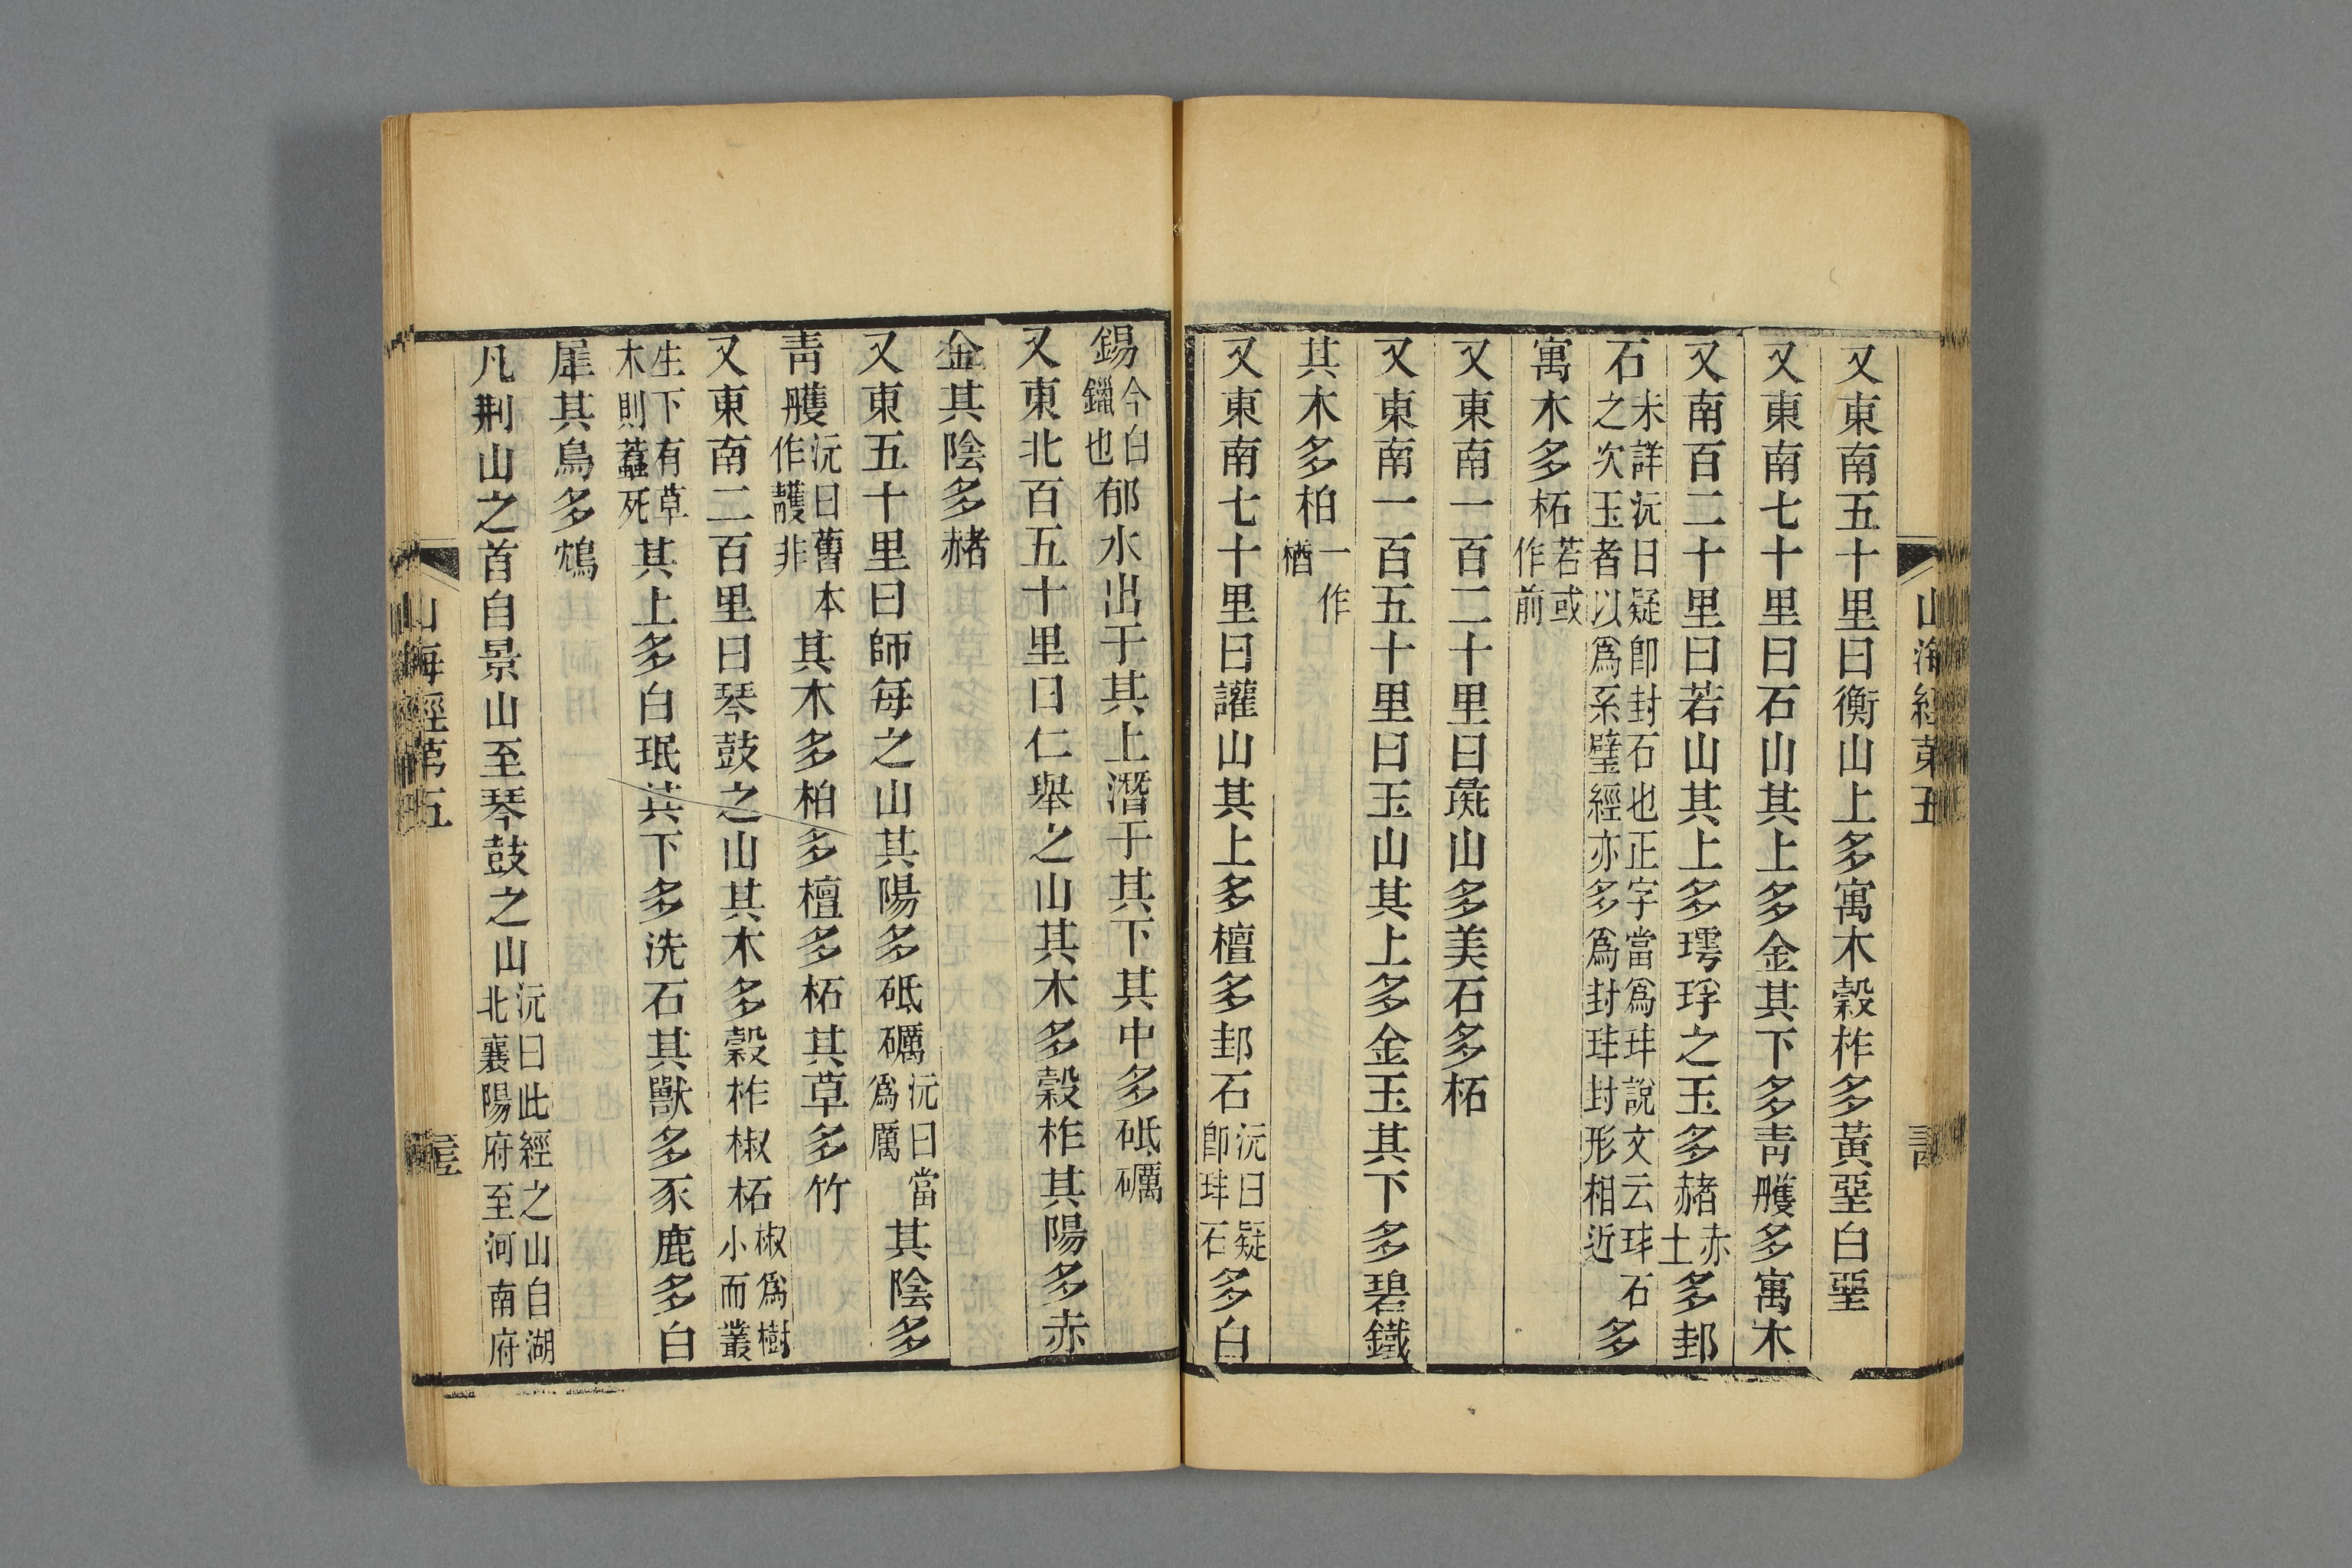 又東南五十里曰衡山上多寓木穀柞多黃堊白堊
又東南七十里曰石山其上多金其下多青雘多寓木
又南百二十里曰若山其上多㻬琈之玉多赭赤土多邽
石未詳沅曰疑卽封石也正字當爲玤說文云玤石之次玉者以爲系璧經亦多爲封玤封形相近多
寓木多柘若或作前
又東南一百二十里曰彘山多美石多柘
又東南一百五十里曰玉山其上多金玉其下多碧鐵
其木多柏一作楢
又東南七十里曰讙山其上多檀多邽石沅曰疑卽玤石多白
錫今白鑞也郁水出于其上潛于其下其中多砥礪
又東北百五十里曰仁舉之山其木多穀柞其陽多赤
金其陰多赭
又東五十里曰師每之山其陽多砥礪沅曰當爲厲其陰多
青雘沅曰舊本作頀非其木多柏多檀多柘其草多竹
又東南二百里曰琴鼓之山其木多穀柞椒柘椒爲樹小而叢
生下有草木則蠚死其上多白珉其下多洗石其獸多豕鹿多白
犀其鳥多鴆
凡荆山之首自景山至琴鼓之山沅曰此經之山自湖北襄陽府至河南府
山海經第五